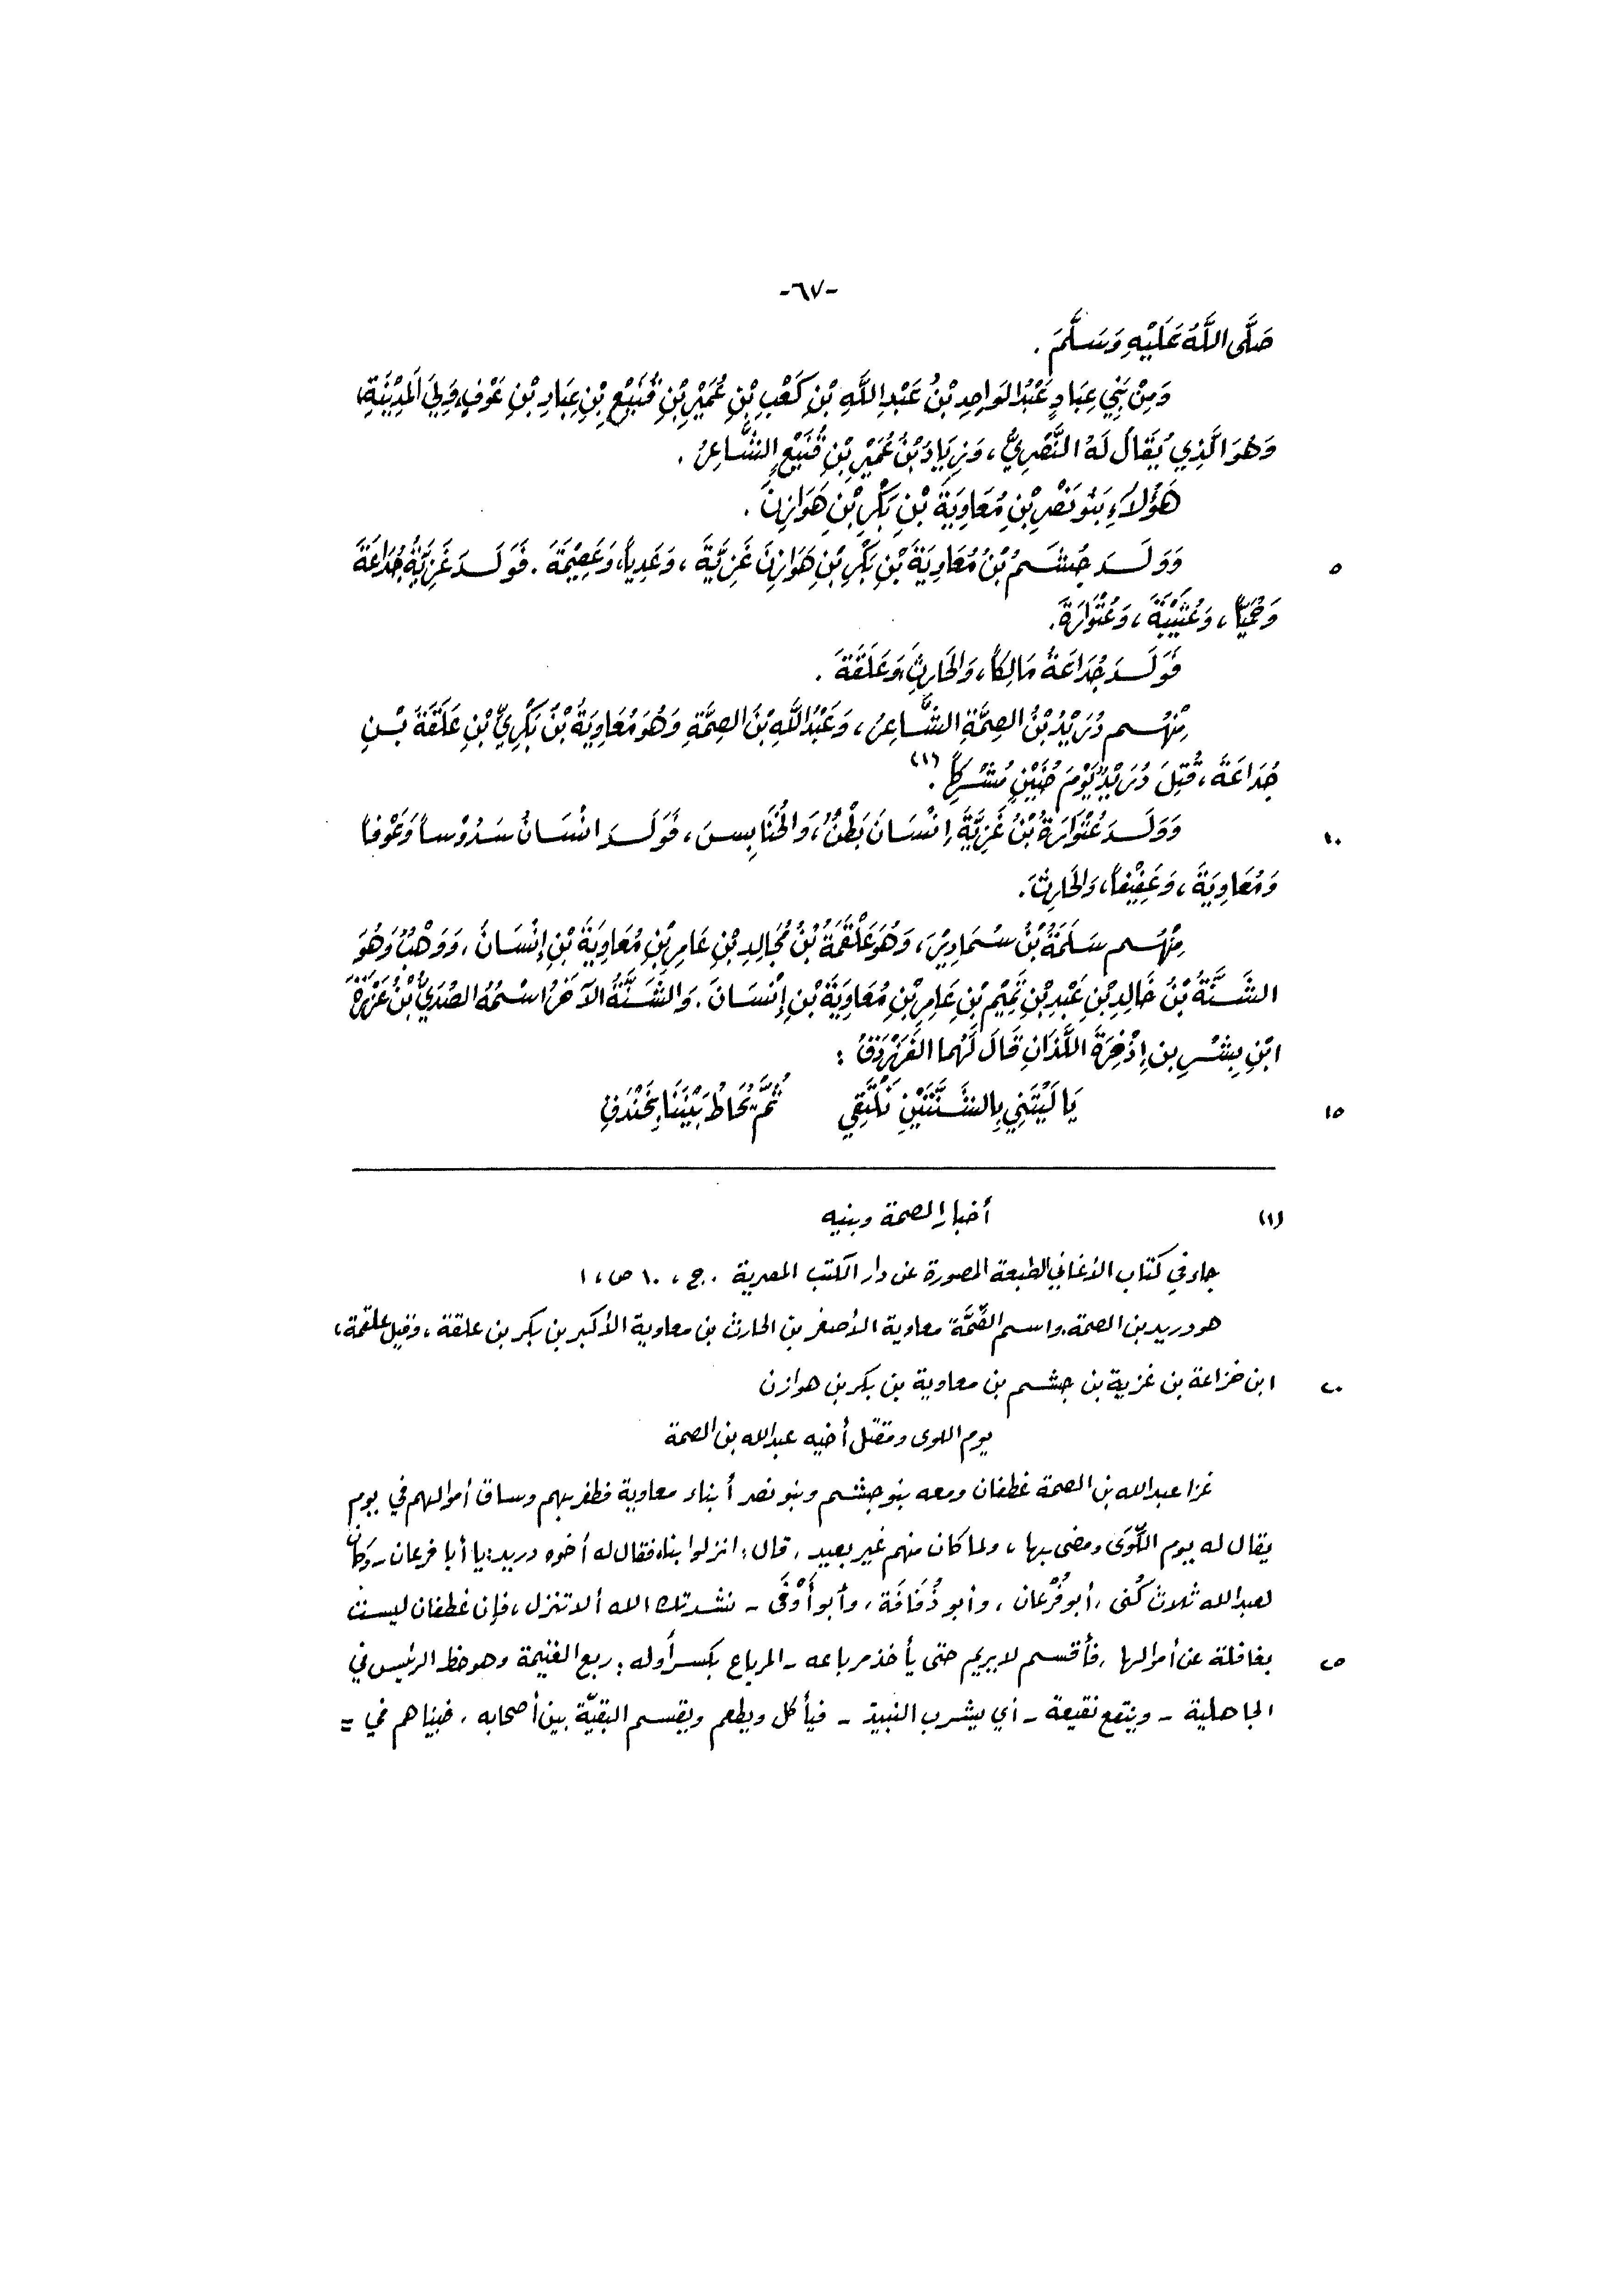 -٦٧-
صَلَّى اللَّهُ عَلَيْهِ وَسَلَّمَ .
وَمِنْ بَنِي عِبَادٍ عَبْدُ الوَاحِدِ بْنُ عَبْدِ اللَّهِ بْنِ كَعْبِ بْنِ عُمَيْرِ بْنِ قُنَيْعِ بْنِ عِبَادِ بْنِ عَوْفٍ، وَلِيَ المَدِيْنَةِ،
وَهُوَ الَّذِي يُقَالُ لَهُ النَّصْرِيُّ ، وَزِيَادُ بْنُ عُمَيْرِ بْنِ قُنَيْعٍ الشَّاعِرُ .
هَؤُلَاءِ بَنُو نَصْرِ بْنِ مُعَاوِيَةَ بْنِ بَكْرِ بْنِ هَوَازِنَ .
٥ وَوَلَدَ جُشَمُ بْنُ مُعَاوِيَةَ بْنِ بَكْرِ بْنِ هَوَازِنَ غَزِيَّةَ ، وَعَدِيّاً، وَعَصِيْمَةَ . فَوَلَدَ غَزِيَّةُ جُدَاعَةَ
وَحُمَيّاً ، وَعُتَيْبَةَ ، وَعُتْوَارَةَ.
فَوَلَدَ جُدَاعَةُ مَالِكاً، وَالحَارِثَ، وَعَلَقَةَ .
مِنْهُم دُرَيْدُ بْنُ الصِمَّةِ الشَّاعِرُ ، وَعَبْدُ اللَّهِ بْنُ الصِمَّةِ وَهُوَ مُعَاوِيَةُ بْنُ بَكْرِيِّ بْنِ عَلَقَةَ بْنِ
جُدَاعَةَ ، قُتِلَ دُرَيْدٌ يَوْمَ حُنَيْنٍ مُشْرِكاً .(١)
١٠ وَوَلَدَ عُتْوَارَةُ بْنُ غَزِيَّةَ إِنْسَانَ بَطْنٌ، وَالخُنَابِسَ ، فَوَلَدَ انْسَانُ سَدُوْساً وَعَوْفاً
وَمُعَاوِيَةَ ، وَعَفِيْفاً، وَالحَارِثَ.
مِنْهُم سَلَمَةُ بْنُ سَمَادِيْرَ ، وَهُوَ عَلْقَمَةُ بْنُ مُجَالِدِ بْنِ عَامِرِ بْنِ مُعَاوِيَةَ بْنِ إِنْسَانَ ، وَوَهْبٌ وَهُوَ
الشَّنَّةُ بْنُ خَالِدِ بْنِ عَبْدِ بْنِ تَمِيْمِ بْنِ عَامِرِ بْنِ مُعَاوِيَةَ بْنِ إِنْسَانَ . وَالشَّنَّةُ الآخَرُ اسْمُهُ الصُدَيُّ بْنُ عَزْرَةَ
ابْنِ بِشْرِ بنِ إِذْخِرَةَ اللَّذَانِ قَالَ لَهُمَا الفَرَزْدَقُ :
١٥ يَا لَيْتَنِي بِالشَّنَّتَيْنِ نَلْتَقِي ثُمَّ يُحَاطُ بَيْنَنَا بِخَنْدَقِ
(١) أخبار الصمة وبنيه
جاء في كتاب الأغاني الطبعة المصورة عن دار الكتب المصرية . ج ، ١٠ ص، ١
هو دريد بن الصمة، واسم الصِّمَّة معاوية الأصغر بن الحارث بن معاوية الأكبر بن بكر بن علقة ، وقيل علقمة ،
٢٠ ابن خزاعة بن غزية بن جشم بن معاوية بن بكر بن هوازن
يوم اللوى ومقتل أخيه عبدالله بن الصمة
غزا عبدالله بن الصمة غطفان ومعه بنو جشم وبنو نصر أبناء معاوية فظفر بهم وساق أموالهم في يوم
يقال له يوم اللِّوَى ومضى بها ، ولما كان منهم غير بعيد . قال : انزلوا بنا، فقال له أخوه دريد : يا أبا فرعان ـ وكان
لعبدالله ثلاث كُنى ، أبو فُرْعان ، وأبو ذُفَافَة ، وأبو أَوْفَى ـ نشدتك الله ألا تنزل ، فإن غطفان ليست
٢٥ بغافلة عن أموالها ، فأقسم لا يريم حتى يأخذ مرباعه ـ المرباع بكسر أوله : ربع الغنيمة وهو حظ الرئيس في
الجاهلية ـ وينقع نقيعة ـ أي يشرب النبيذ ـ فيأكل ويطعم ويقسم البقيّة بين أصحابه ، فبينا هم في =